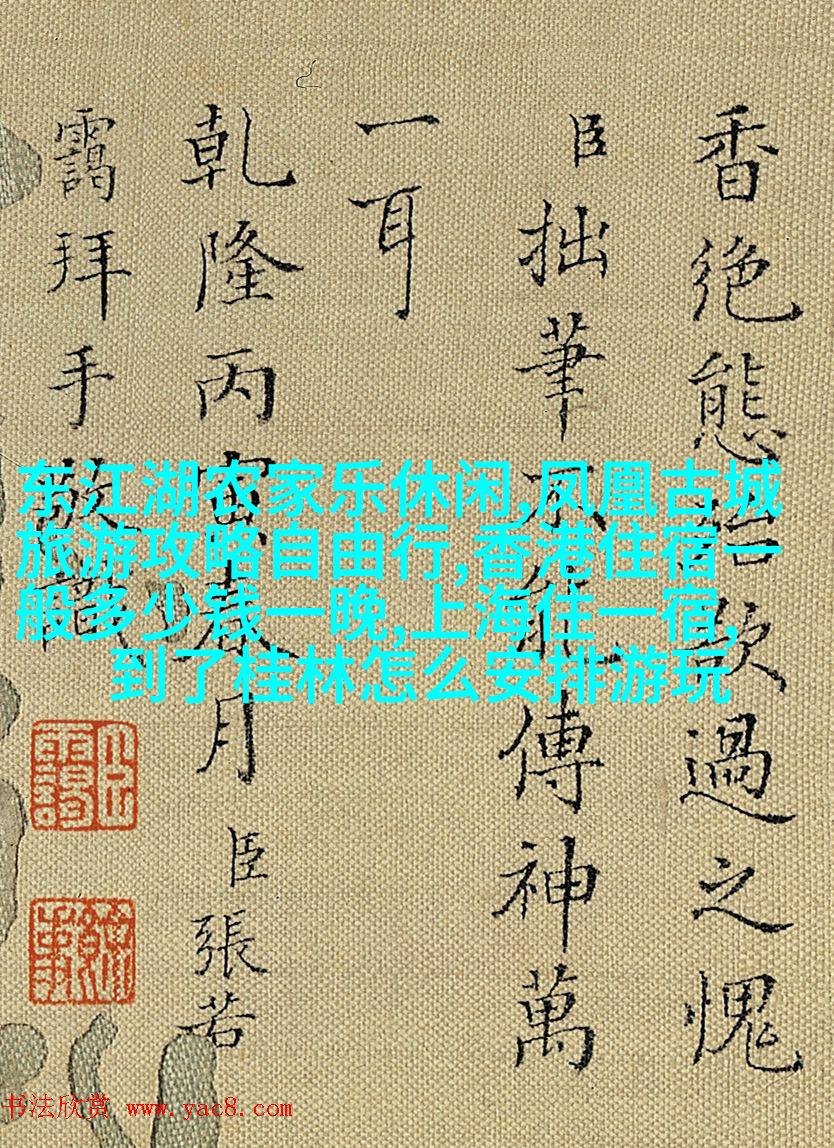 香絶態殆欲過之愧
臣拙筆不能傳神萬
一耳
乾隆丙寅春月臣張若
靄拜手敬識
东江湖农家乐休闲,凤凰古城
旅游攻略自由行,香港住宿一
般多少钱一晚,上海住一宿,
到了桂林怎么安排游玩
书法欣赏 www.yac8.com